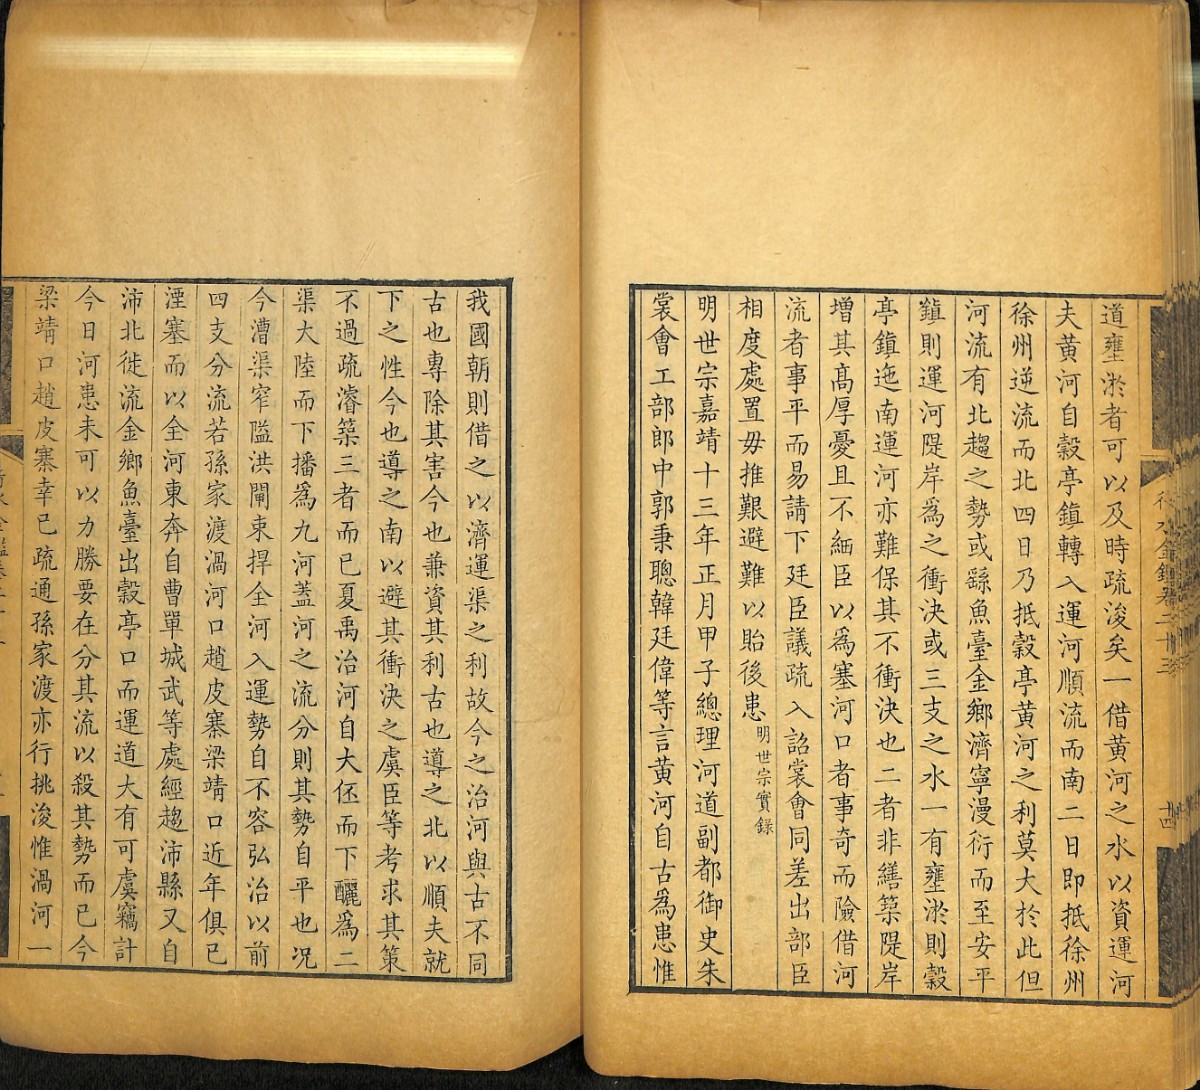 道壅淤者可以及時疏浚矣一借黄河之水以資運河
夫黄河自穀亭鎮轉入運河順流而南二日即抵徐州
徐州逆流而北四日乃抵穀亭黄河之利莫大於此但
河流有北趨之勢或繇魚臺金鄉濟寧漫衍而至安平
鎮則運河隄岸爲之衝決或三支之水一有壅淤則穀
亭鎮迤南運河亦難保其不衝決也二者非繕築隄岸
增其髙厚憂且不緬臣以爲塞河口者事奇而險借河
流者事平而易請下廷臣議疏入詔裳會同差出部臣
相度處置毋推艱避難以貽後患明世宗實錄
明世宗嘉靖十三年正月甲子總理河道副都御史朱
裳會工部郎中郭秉聰韓廷偉等言黄河自古爲患惟
行水金鑑卷二十三
十四
我國朝則借之以濟運渠之利故今之治河與古不同
古也專除其害今也兼資其利古也導之北以順夫就
下之性今也導之南以避其衝決之虞臣等考求其策
不過疏濬築三者而已夏禹治河自大伾而下釃爲二
渠大陸而下播爲九河蓋河之流分則其勢自平也况
今漕渠窄隘洪閘束捍全河入運勢自不容弘治以前
四支分流若孫家渡渦河口趙皮寨梁靖口近年俱已
湮塞而以全河東奔自曹單城武等處經趨沛縣又自
沛北徙流金鄉魚臺出穀亭口而運道大有可虞竊計
今日河患未可以力勝要在分其流以殺其勢而已今
梁靖口趙皮寨幸已疏通孫家渡亦行挑浚惟渦河一